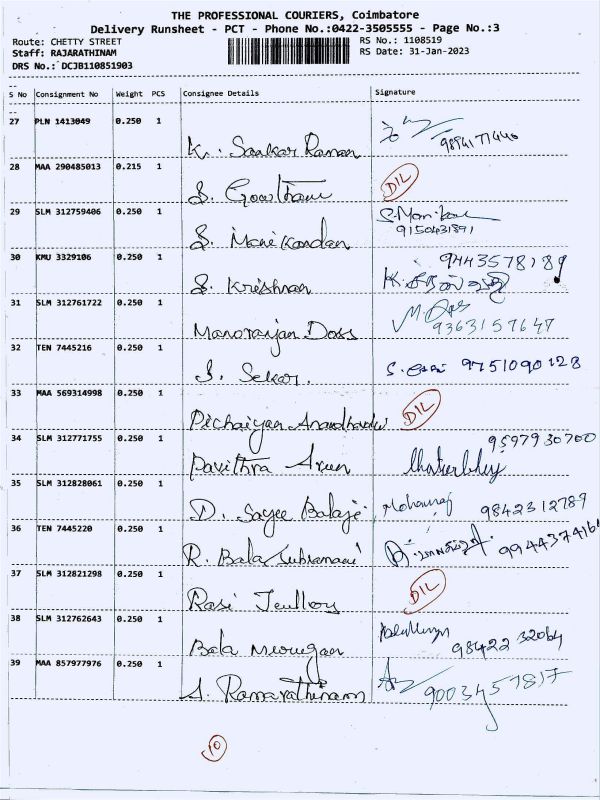 THE PROFESSIONAL COURIERS, Coimbatore
Delivery Runsheet - PCT - Phone No.:0422-3505555 - Page No.:3
Route: CHETTY STREET
RS No.: 1108519
Staff: RAJARATHINAM
RS Date: 31-Jan-2023
DRS No.: DCJB110851903
S No Consignment No Weight PCS Consignee Details Signature
27 PLN 1413049 0.250 1
K. Sankar Raman
28 MAA 290485013 0.215 1
S. Gowtham DIL
29 SLM 312759406 0.250 1
S. Manikandan 9150431891
30 KMU 3329106 0.250 1
S. Krishnan 9443578189
31 SLM 312761722 0.250 1
Manoranjan Doss 9363157647
32 TEN 7445216 0.250 1
S. Sekar. 9751090128
33 MAA 569314998 0.250 1
Pichaiyan DIL
34 SLM 312771755 0.250 1
Pavithra Arun 9597930700
35 SLM 312828061 0.250 1
D. Sayee Balaje Mohanraj 9842312789
36 TEN 7445220 0.250 1
R. Bala 994437416
37 SLM 312821298 0.250 1
Rasi DIL
38 SLM 312762643 0.250 1
Bala Murugan 9842232064
39 MAA 857977976 0.250 1
S. Ramarathinam 9003457817
10